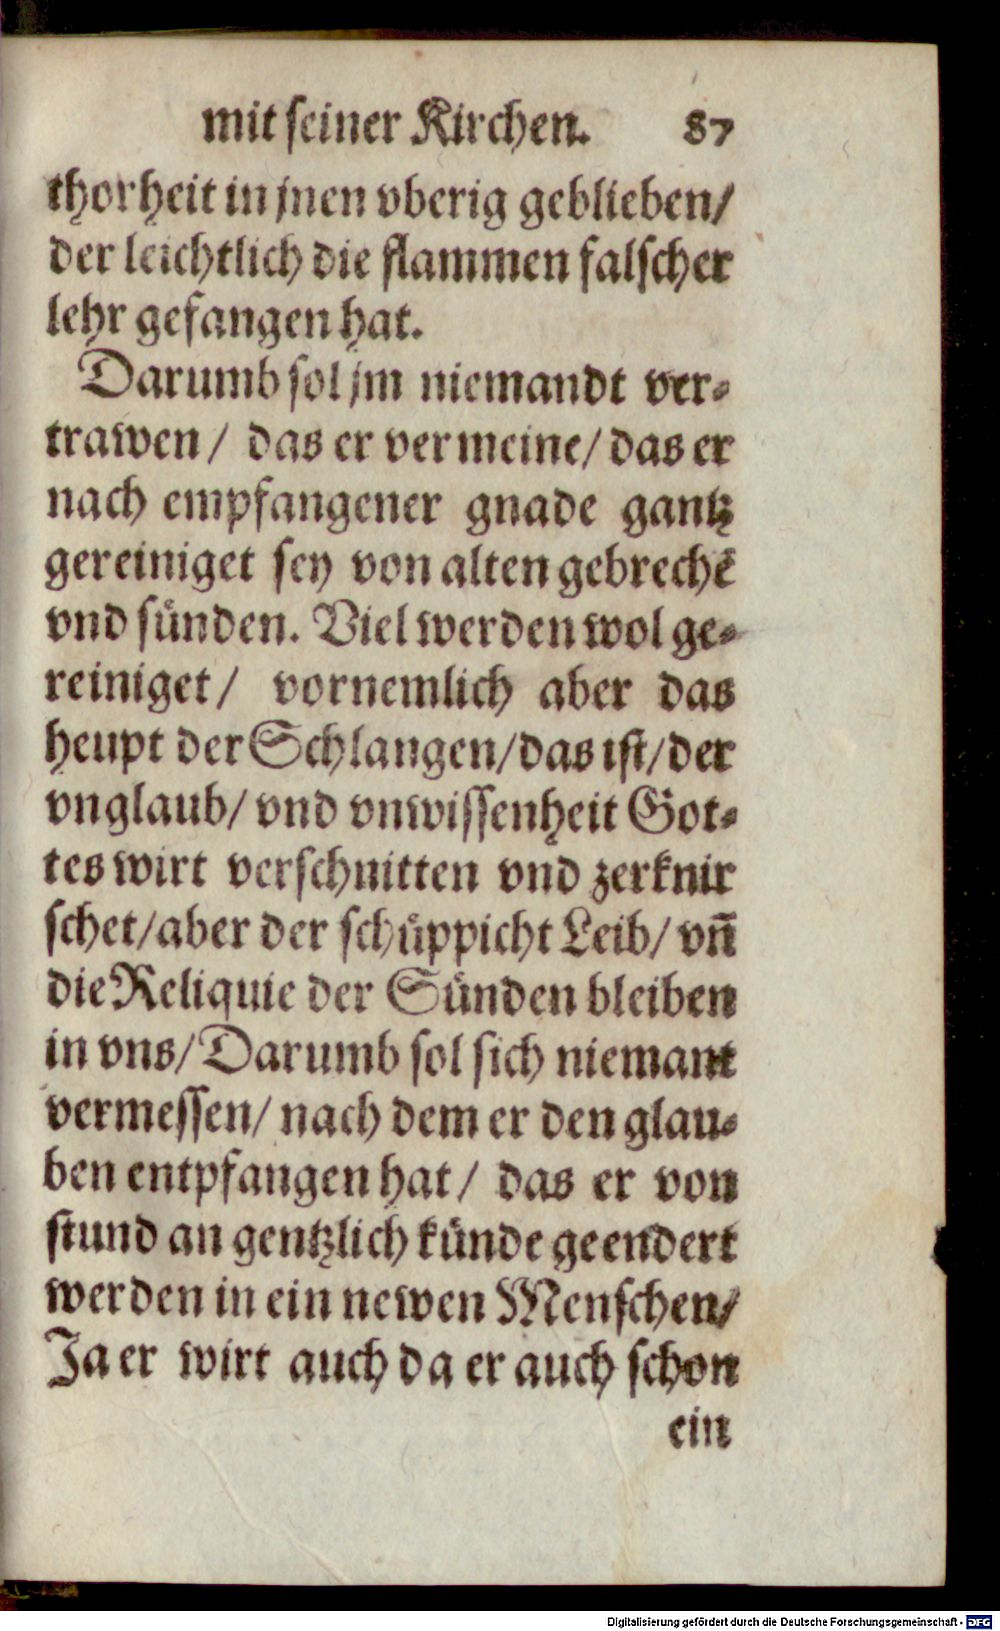 mit seiner Kirchen. 87
thorheit in jnen vberig geblieben/
der leichtlich die flammen falscher
lehr gefangen hat.
Darumb sol jm niemandt ver-
trawen/ das er vermeine/ das er
nach empfangener gnade gantz
gereiniget sey von alten gebrechē
vnd sünden. Viel werden wol ge-
reiniget/ vornemlich aber das
heupt der Schlangen/ das ist/ der
vnglaub/ vnd vnwissenheit Got-
tes wirt verschnitten vnd zerknir
schet/ aber der schüppicht Leib/ vn̄
die Reliquie der Sünden bleiben
in vns/ Darumb sol sich niemant
vermessen/ nach dem er den glau-
ben entpfangen hat/ das er von
stund an gentzlich künde geendert
werden in ein newen Menschen/
Ja er wirt auch da er auch schon
ein
Digitalisierung gefördert durch die Deutsche Forschungsgemeinschaft - DFG